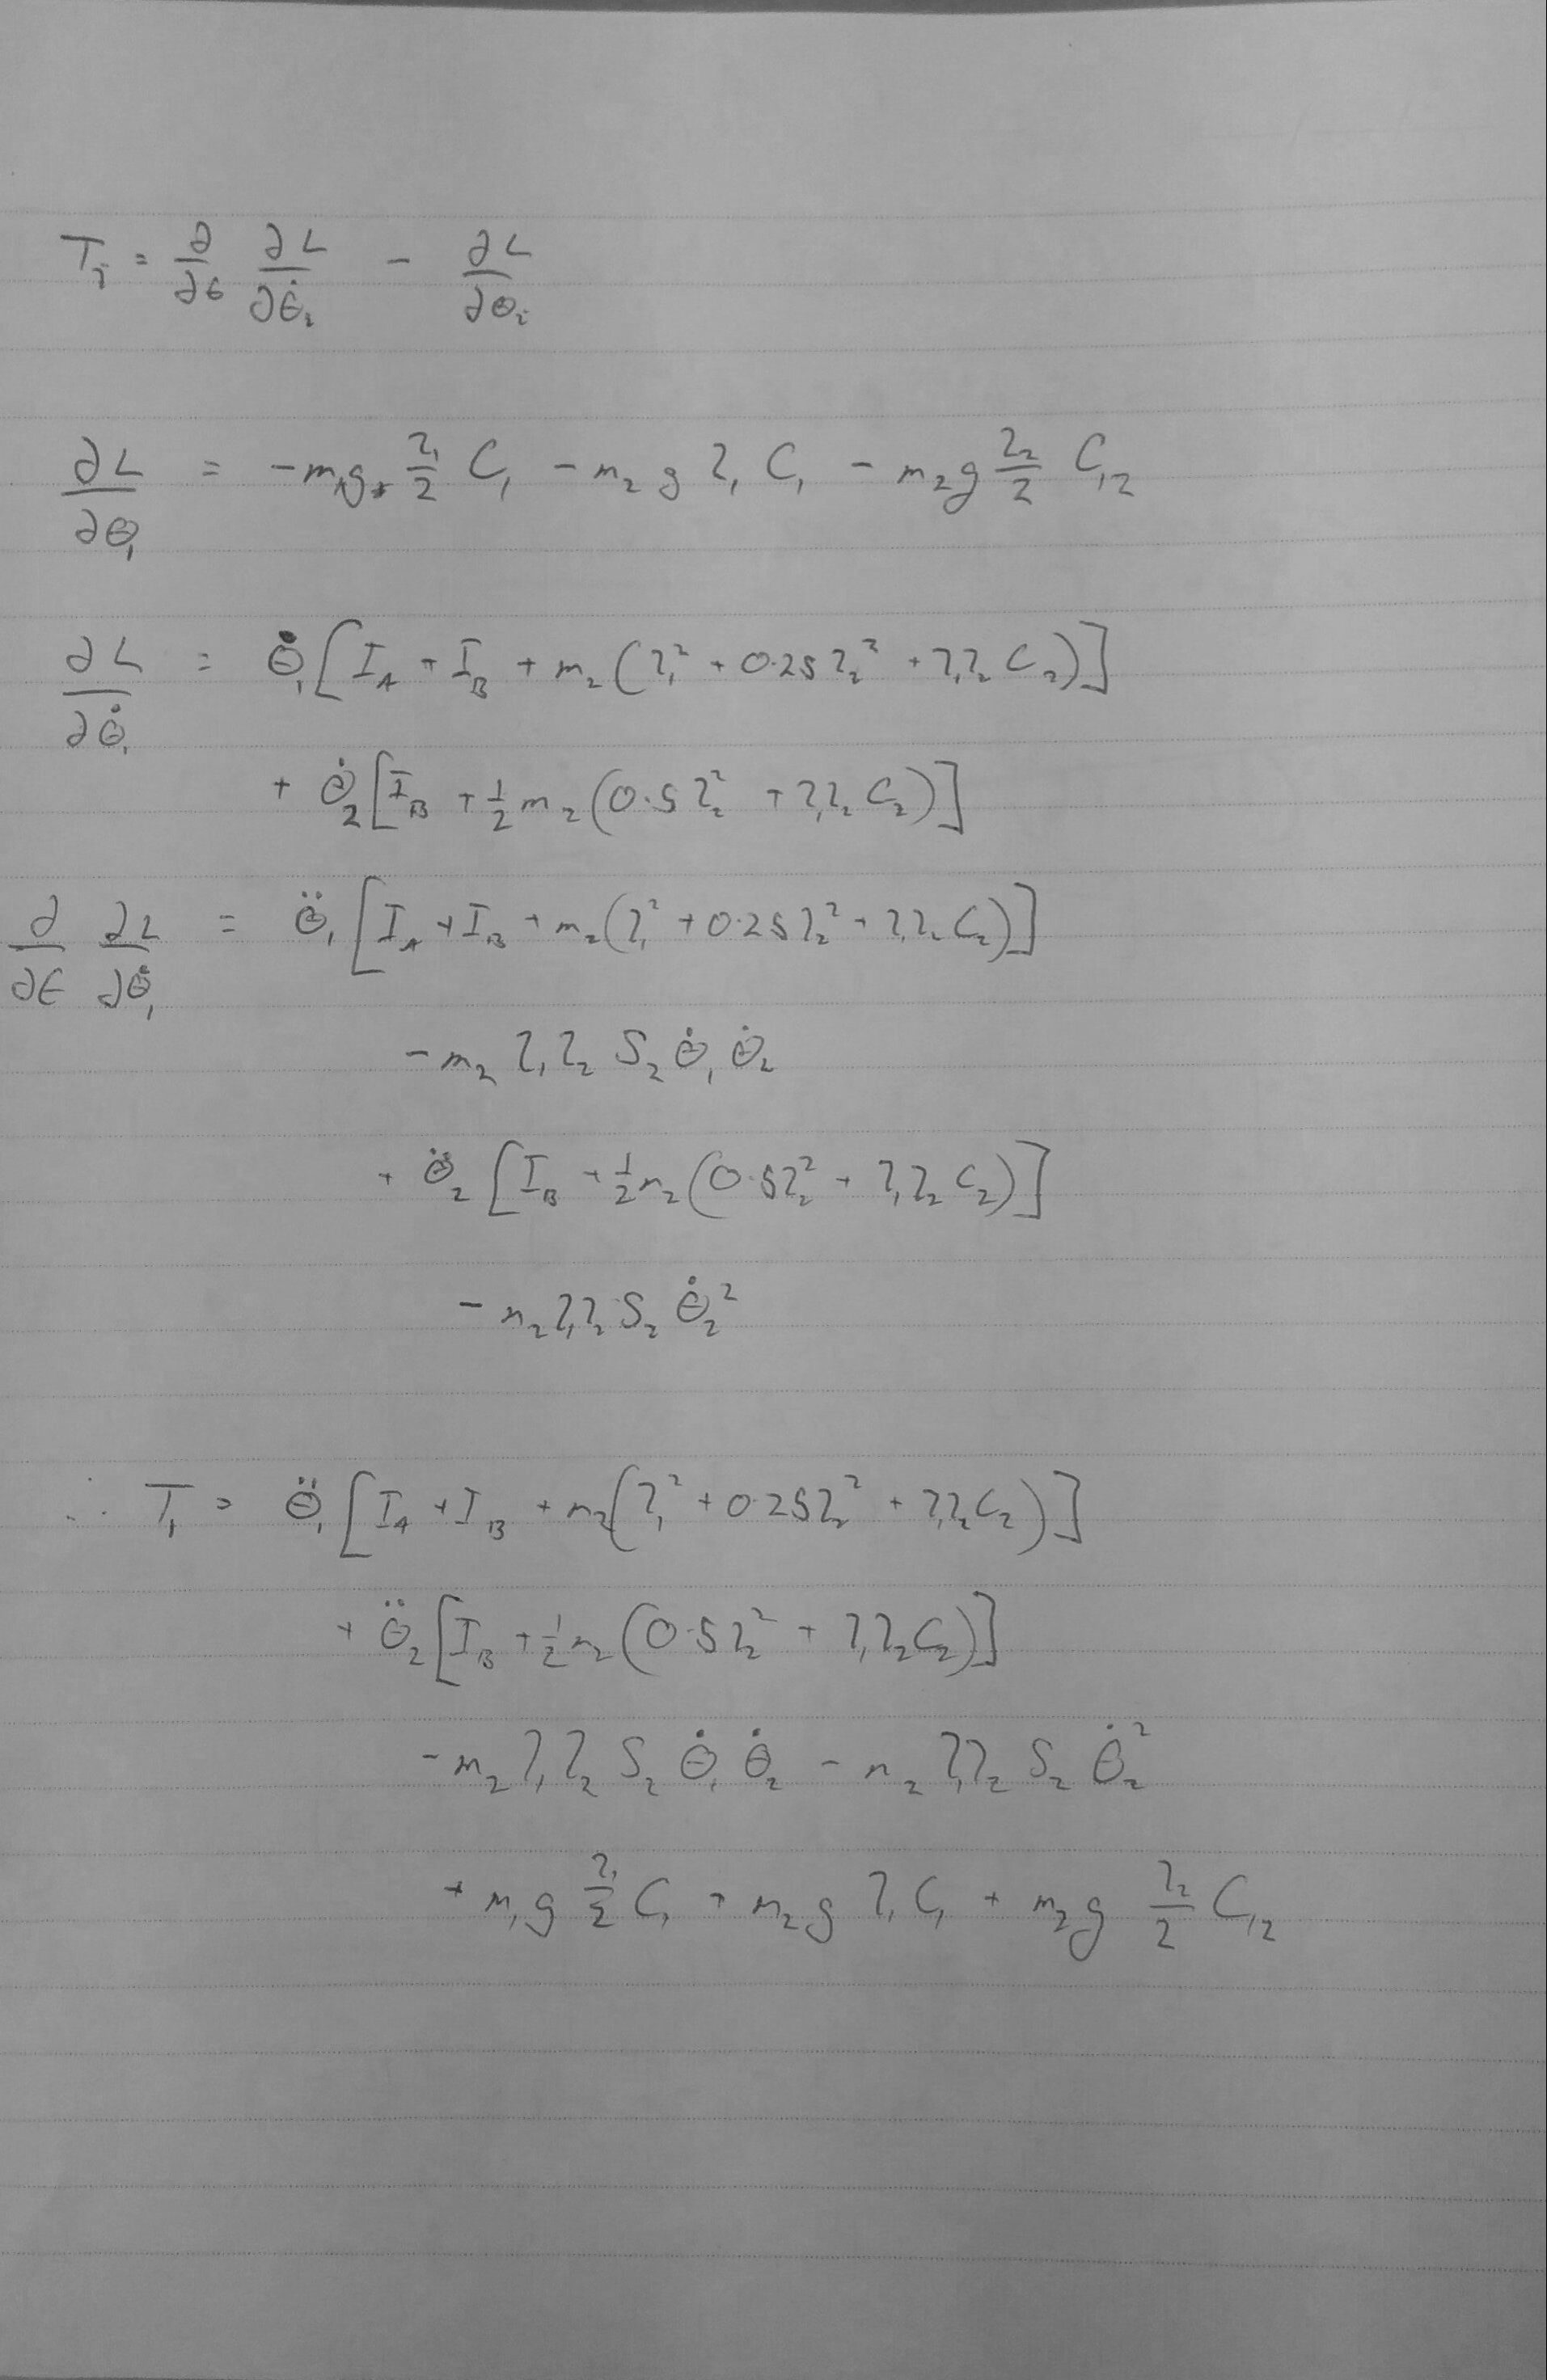 T_i = ∂/∂t ∂L/∂θ̇_i - ∂L/∂θ_i
∂L/∂θ_1 = -m_1 g l_1/2 C_1 - m_2 g l_1 C_1 - m_2 g l_2/2 C_12
∂L/∂θ̇_1 = θ̇_1 [I_A + I_B + m_2 (l_1^2 + 0.25 l_2^2 + l_1 l_2 C_2)]
+ θ̇_2 [I_B + 1/2 m_2 (0.5 l_2^2 + l_1 l_2 C_2)]
∂/∂t ∂L/∂θ̇_1 = θ̈_1 [I_A + I_B + m_2 (l_1^2 + 0.25 l_2^2 + l_1 l_2 C_2)]
- m_2 l_1 l_2 S_2 θ̇_1 θ̇_2
+ θ̈_2 [I_B + 1/2 m_2 (0.5 l_2^2 + l_1 l_2 C_2)]
- m_2 l_1 l_2 S_2 θ̇_2^2
∴ T_1 = θ̈_1 [I_A + I_B + m_2 (l_1^2 + 0.25 l_2^2 + l_1 l_2 C_2)]
+ θ̈_2 [I_B + 1/2 m_2 (0.5 l_2^2 + l_1 l_2 C_2)]
- m_2 l_1 l_2 S_2 θ̇_1 θ̇_2 - m_2 l_1 l_2 S_2 θ̇_2^2
+ m_1 g l_1/2 C_1 + m_2 g l_1 C_1 + m_2 g l_2/2 C_12